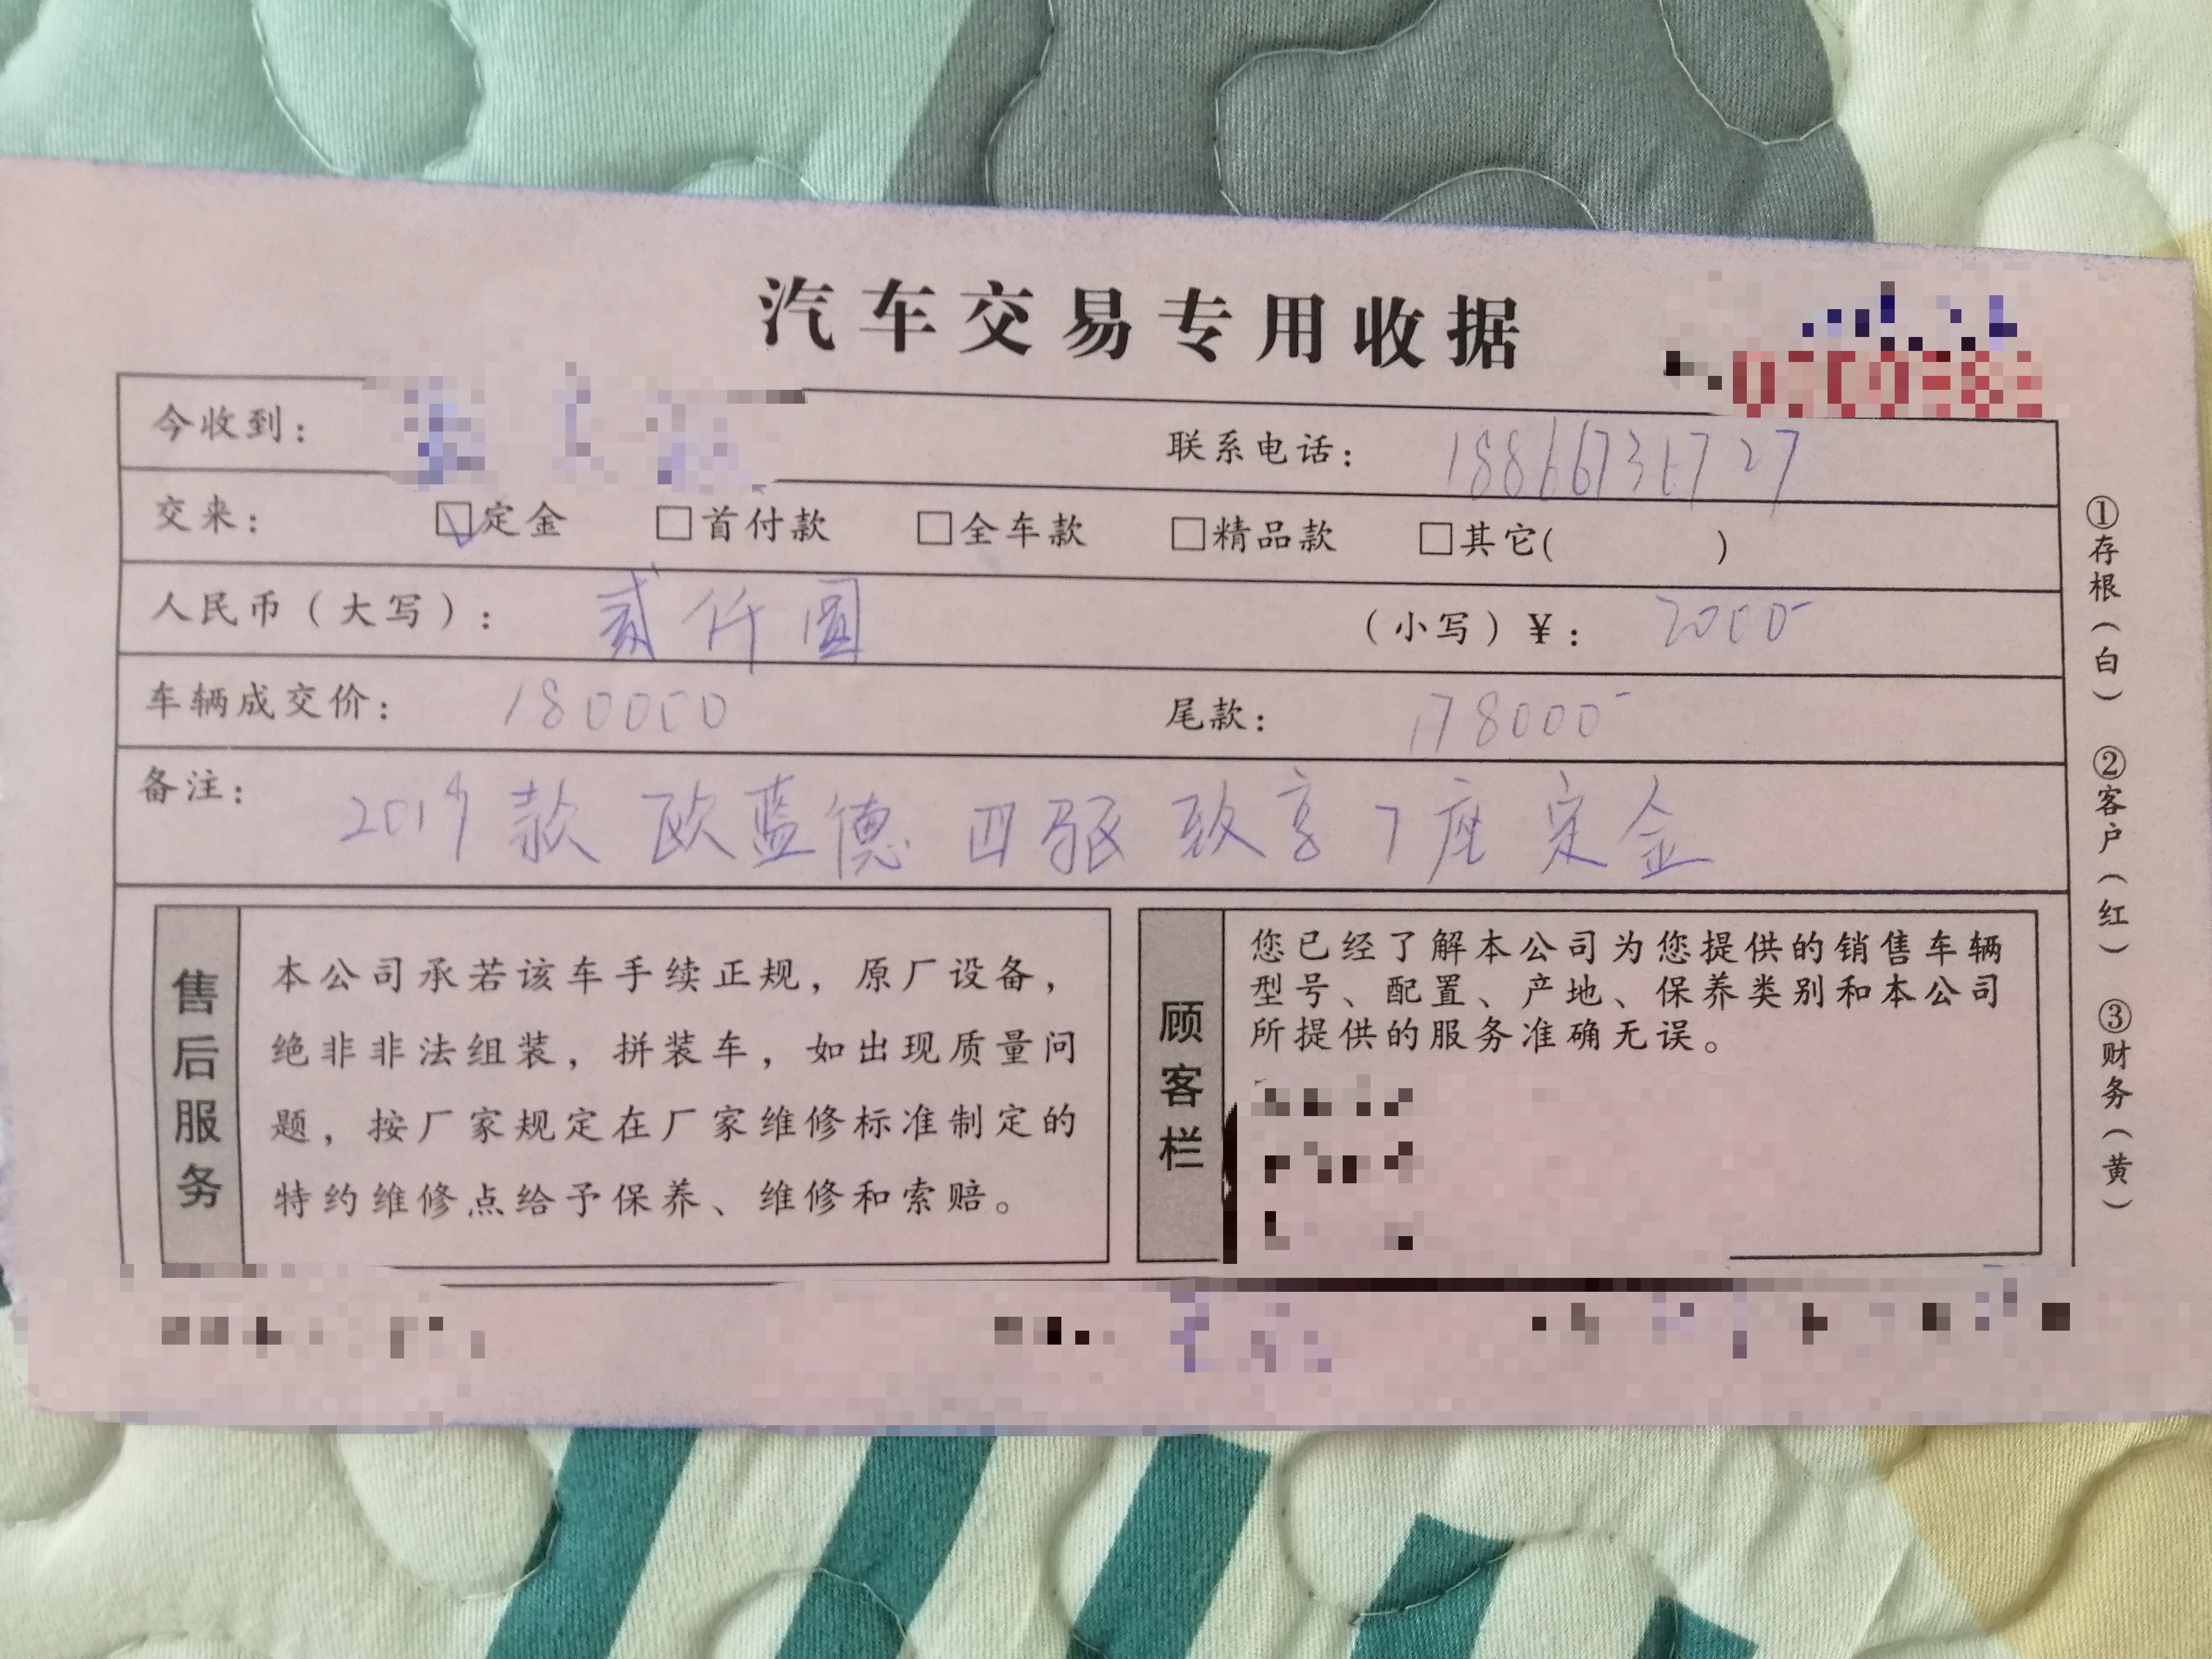 汽车交易专用收据
今收到：
联系电话：18866736727
交来： ☑定金 □首付款 □全车款 □精品款 □其它( )
人民币（大写）： 贰仟圆 （小写）¥：2000
车辆成交价： 180000 尾款： 178000
备注： 2019款 欧蓝德 四驱 致享 7座 定金
售后服务
本公司承若该车手续正规，原厂设备，
绝非非法组装，拼装车，如出现质量问
题，按厂家规定在厂家维修标准制定的
特约维修点给予保养、维修和索赔。
顾客栏
您已经了解本公司为您提供的销售车辆
型号、配置、产地、保养类别和本公司
所提供的服务准确无误。
①存根（白） ②客户（红） ③财务（黄）